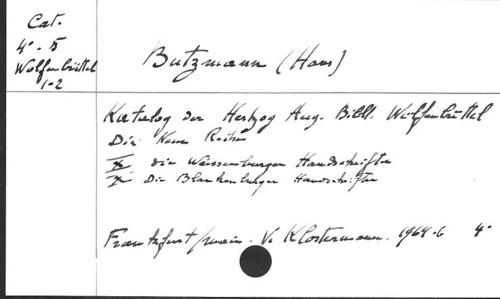 Cat.
4° - 5
Wolfenbüttel
1-2
Butzmann (Hans)
Katalog der Herzog Aug. Bibl. Wolfenbüttel
Die Neue Reihe
X die Weissenburger Handschriften
XI Die Blankenburger Handschriften
Frankfurt/main. V. Klostermann. 1964-6 4°